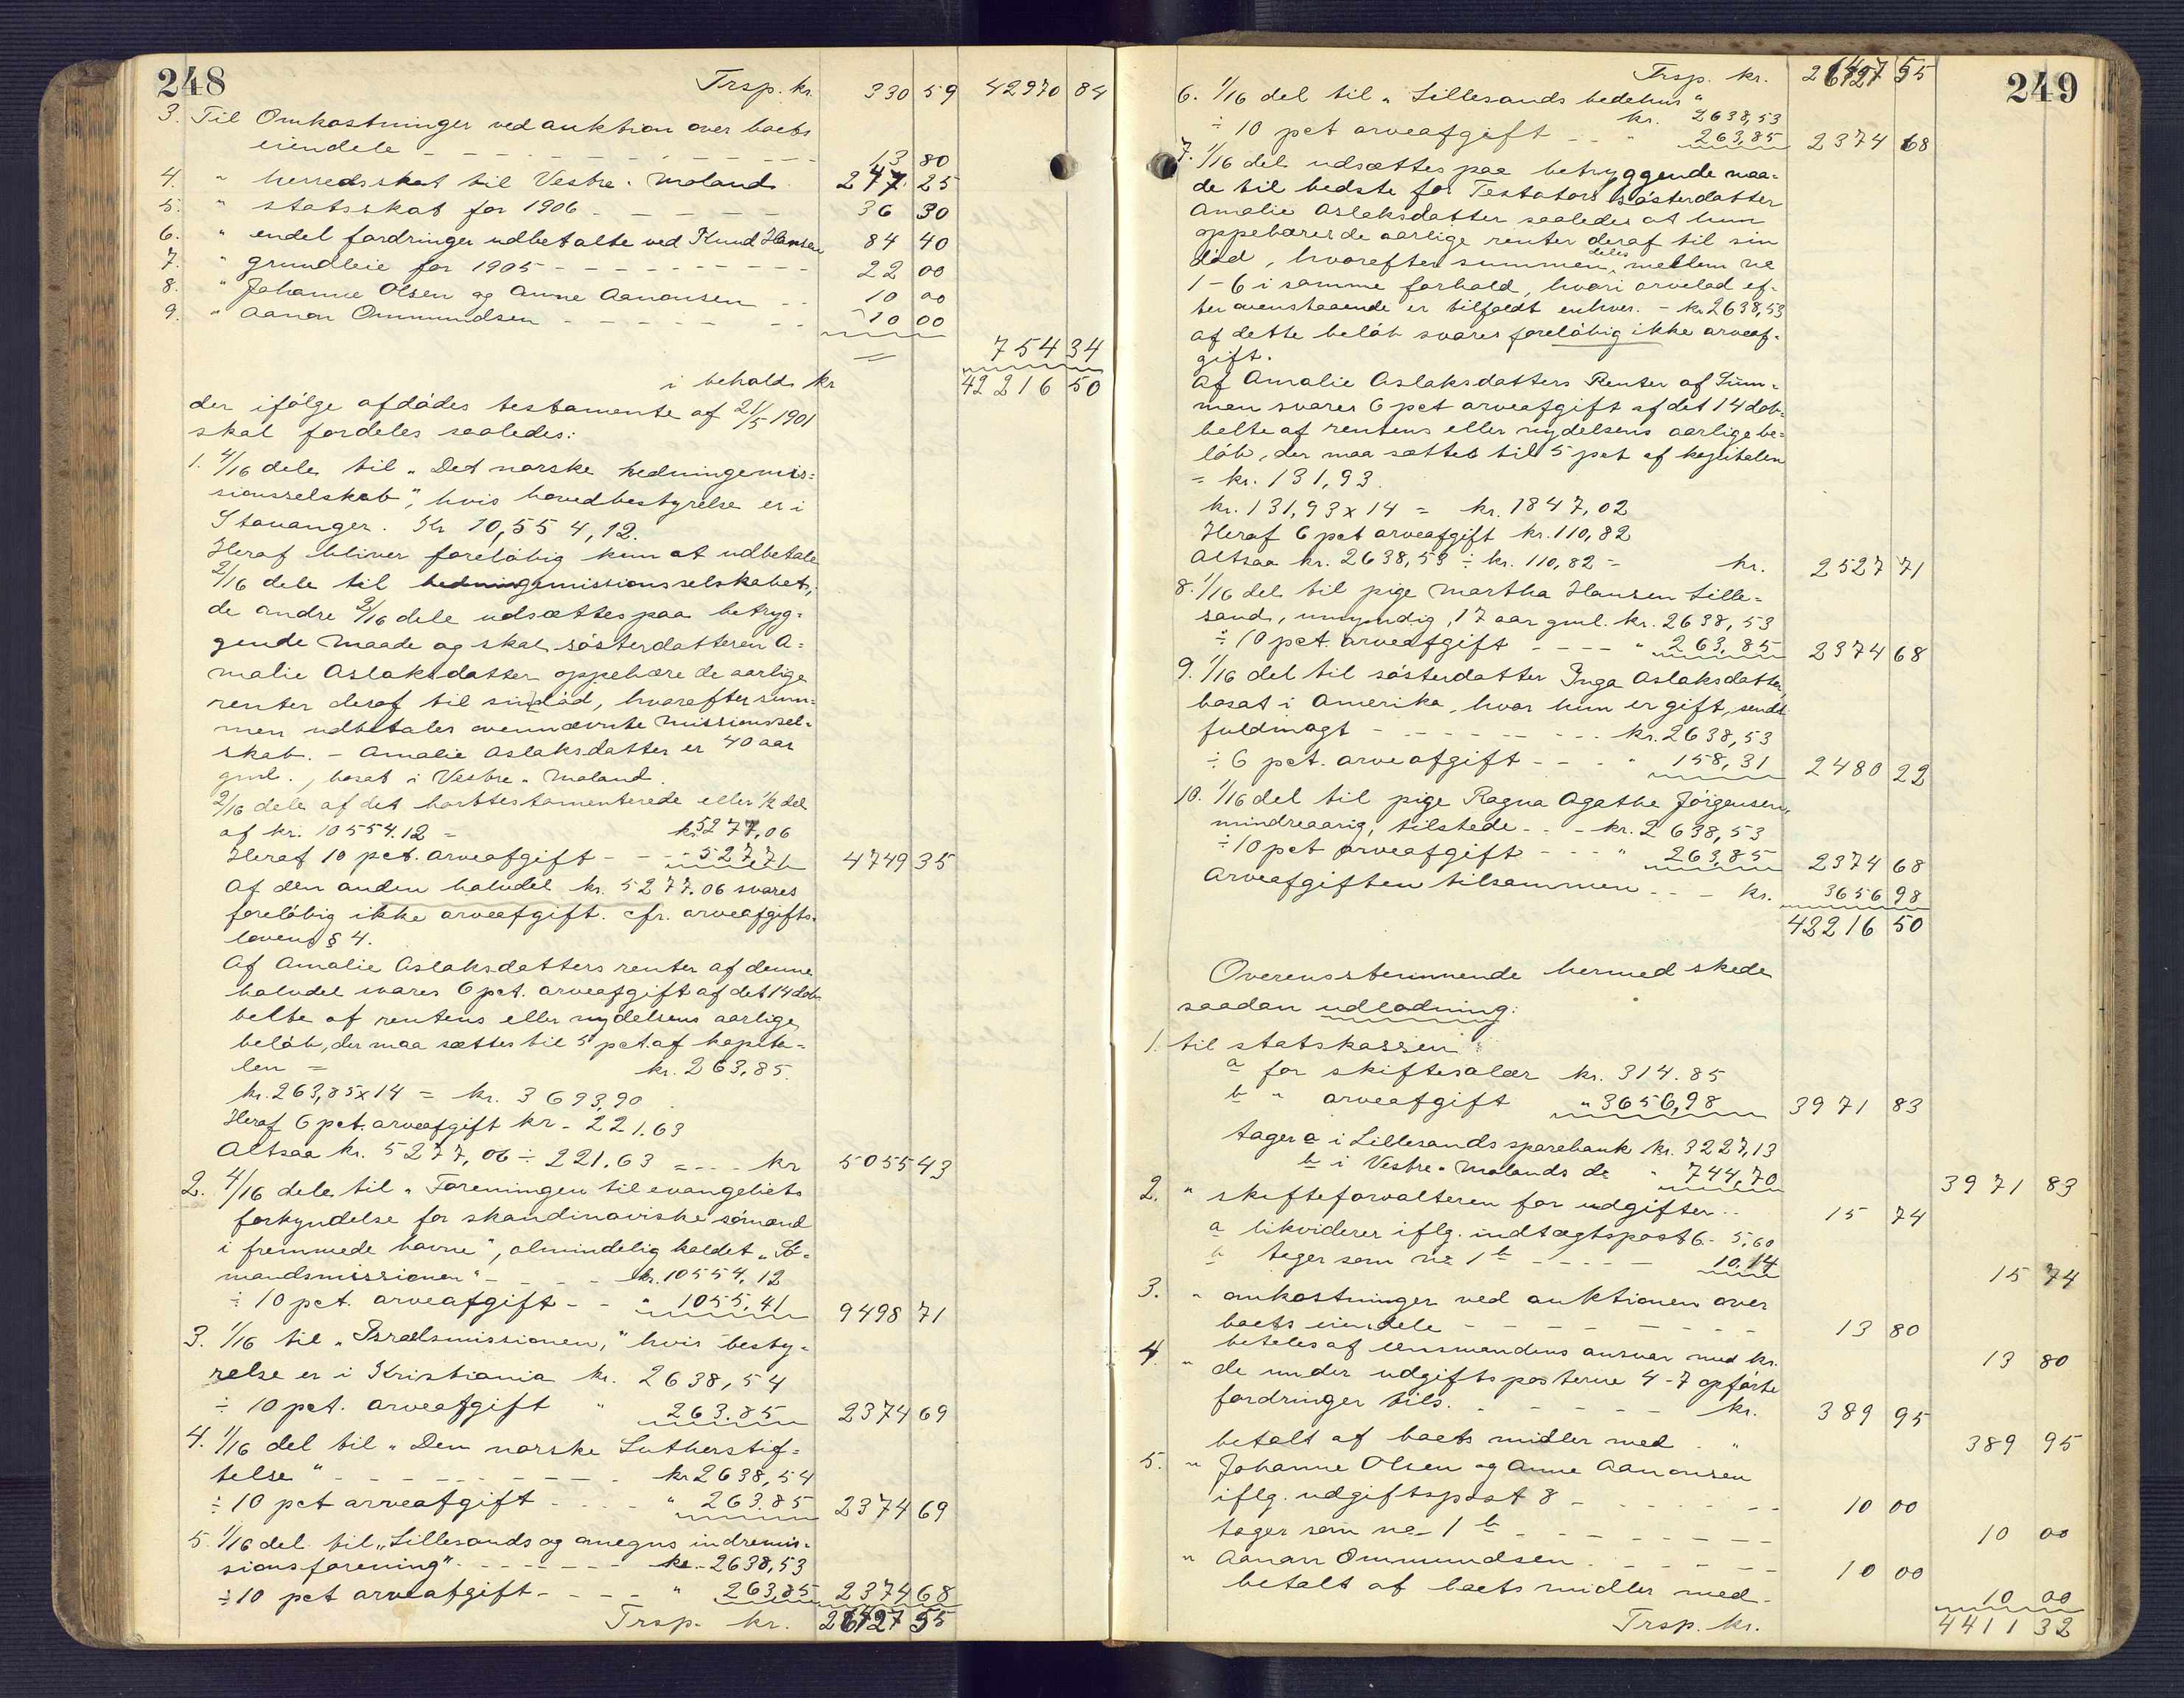 248
Trsp. kr. 330 59 42970 84
3. Til Omkostninger ved auktion over boets
eiendele - - - 13 80
4. " herredsskat til Vestre-Moland 247 25
5. " statsskat for 1906 - - - 36 30
6. " endel fordringer udbetalte ved Knud Hansen 84 40
7. " grundleie for 1905 - - - 22 00
8. " Johanne Olsen og Anne Aanonsen - - 10 00
9. " Aanon Ommundsen - - - 10 00
754 34
i behold kr 42216 50
der ifølge afdødes testamente af 21/5 1901
skal fordeles saaledes:
1. 4/16 dele til "Det norske hedningemis=
sionsselskab", hvis hovedbestyrelse er i
Stavanger. Kr 10,554,12.
Heraf bliver foreløbig kun at udbetale
2/16 dele til hedningemissionsselskabet;
de andre 2/16 dele udsættes paa betryg=
gende maade og skal søsterdatteren A=
malie Aslaksdatter oppebære de aarlige
renter deraf til sin død, hvorefter sum=
men udbetales ovennævnte missionssel=
skab. - Amalie Aslaksdatter er 40 aar
gml., bosat i Vestre-Moland.
2/16 dele af det borttestamenterede eller 1/2 del
af kr. 10554.12 = kr. 5277,06
Heraf 10 pct. arveafgift - - - 527,71 4749 35
Af den anden halvdel kr. 5277.06 svares
foreløbig ikke arveafgift. cfr. arveafgifts=
lovens § 4.
Af Amalie Aslaksdatters renter af denne
halvdel svares 6 pct. arveafgift af det 14 dob=
belte af rentens eller nydelsens aarlige
beløb, der maa sættes til 5 pct. af kapita=
len = kr. 263,85.
kr. 263,85 x 14 = kr. 3693,90.
Heraf 6 pct. arveafgift kr. 221.63
Altsaa kr. 5277,06 ÷ 221.63 = - - - kr 5055 43
2. 4/16 dele til "Foreningen til evangeliets
forkyndelse for skandinaviske sømænd
i fremmede havne", almindelig kaldet "Sø=
mandsmissionen" - - - kr. 10554,12
÷ 10 pct. arveafgift - - " 1055,41 9498 71
3. 1/16 til "Israelsmissionen," hvis besty=
relse er i Kristiania kr. 2638,54
÷ 10 pct. arveafgift " 263.85 2374 69
4. 1/16 del til "Den norske Lutherstif=
telse" - - - kr 2638,54
÷ 10 pct arveafgift - - - " 263.85 2374 69
5. 1/16 del til "Lillesands og omegns indremis=
sionsforening" - - - kr. 2638,53
÷ 10 pct arveafgift - - - " 263.85 2374 68
Trsp. kr. 26427 55
249
Trsp. kr. 26427 55
6. 1/16 del til "Lillesands bedehus"
kr. 2638,53
÷ 10 pct arveafgift - - " 263,85 2374 68
7. 1/16 del udsættes paa betryggende maa=
de til bedste for Testators søsterdatter
Amalie Aslaksdatter saaledes at hun
oppebærer de aarlige renter deraf til sin
død, hvorefter summen deles mellem no
1-6 i samme forhold, hvori arvelod ef=
ter ovenstaaende er tilfaldt enhver. - kr. 2638,53
af dette beløb svares foreløbig ikke arveaf=
gift.
Af Amalie Aslaksdatters Renter af Sum=
men svares 6 pct arveafgift af det 14 dob=
belte af rentens eller nydelsens aarlige be=
løb, der maa sættes til 5 pct af kapitalen
= kr. 131,93.
kr. 131,93 x 14 = kr. 1847,02
Heraf 6 pct arveafgift kr. 110,82
Altsaa kr. 2638,53 ÷ kr. 110,82 = kr. 2527 71
8. 1/16 del til pige Martha Hansen Lille=
sand, umyndig, 17 aar gml. kr. 2638,53
÷ 10 pct. arveafgift - - - " 263,85 2374 68
9. 1/16 del til søsterdatter Inga Aslaksdatter,
bosat i Amerika, hvor hun er gift, sendt
fuldmagt - - - kr. 2638,53
÷ 6 pct. arveafgift - - - " 158,31 2480 22
10. 1/16 del til pige Ragna Agathe Jørgensen,
mindreaarig, tilstede - - - kr. 2638,53
÷ 10 pct arveafgift - - - " 263,85 2374 68
Arveafgiften tilsammen - - - kr. 3656 98
42216 50
Overensstemmende hermed skede
saadan udlodning:
1. til statskassen:
a for skiftesalær kr. 314.85
b " arveafgift " 3656,98 3971 83
tager a i Lillesands sparebank kr. 3227,13
b i Vestre-Molands do " 744,70 3971 83
2. " skifteforvalteren for udgifter - - 15 74
a likviderer iflg. indtægtspost 6 - 5,60
b tager som no 1 b - - - 10,14 15 74
3. " omkostninger ved auktionen over
boets eiendele - - - 13 80
betales af lensmandens ansvar med kr. 13 80
4. " de under udgiftsposterne 4-7 opførte
fordringer tils. - - - kr. 389 95
betalt af boets midler med - " 389 95
5. " Johanne Olsen og Anne Aanonsen
iflg. udgiftspost 8 - - - 10 00
tager som no 1 b - - - 10 00
" Aanon Ommundsen - - - 10 00
betalt af boets midler med - 10 00
Trsp. kr. 4411 32